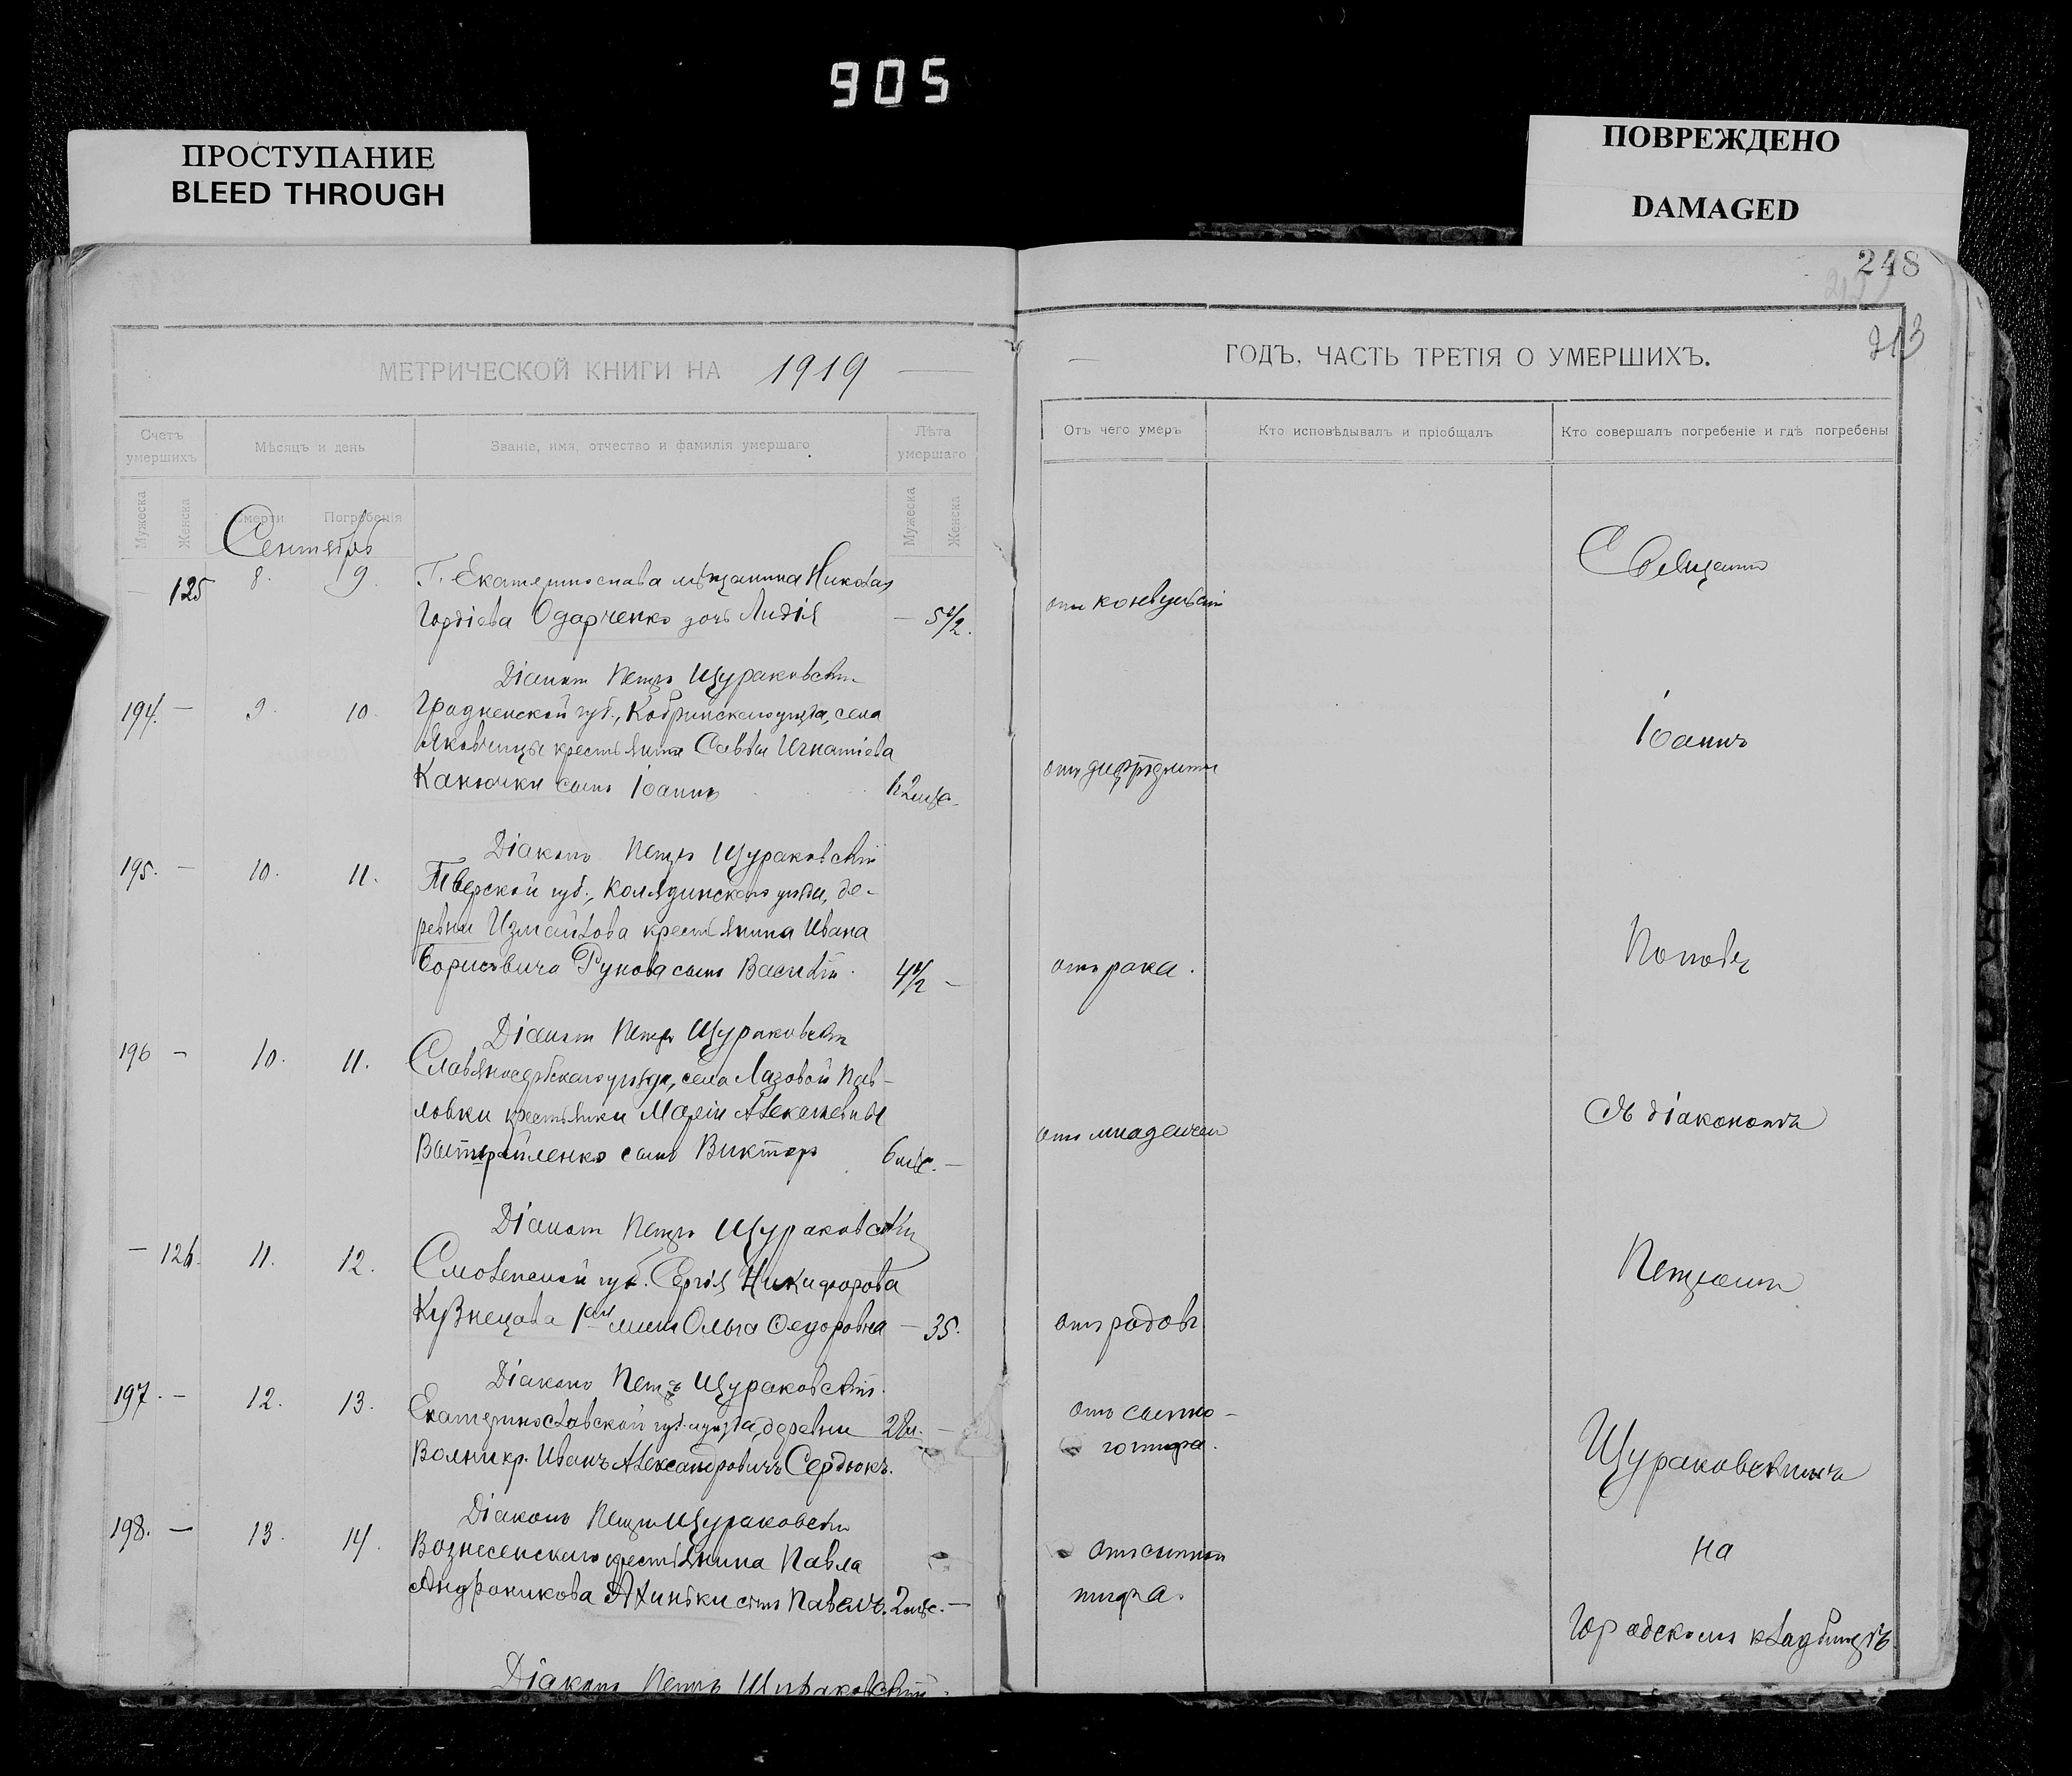 905
ПРОСТУПАНИЕ
BLEED THROUGH
ПОВРЕЖДЕНО
DAMAGED
248
213
МЕТРИЧЕСКОЙ КНИГИ НА 1919
ГОДЪ, ЧАСТЬ ТРЕТІЯ О УМЕРШИХЪ.
Счетъ умершихъ
Мѣсяцъ и день
Званіе, имя, отчество и фамилія умершаго.
Лѣта умершаго
Мужеска
Женска
Смерти
Погребенія
Мужеска
Женска
Отъ чего умеръ
Кто исповѣдывалъ и пріобщалъ
Кто совершалъ погребеніе и гдѣ погребены
Сентябрь
— 125 8. 9. Г. Екатеринослава мѣщанина Николая
Гордіева Одарченко дочь Лидія — 5 1/2.
отъ конвульсій
Діаконъ Петръ Щураковскій
194. — 9. 10. Гродненской губ., Кобринского уѣзда, села
крестьянина Саввы Игнатіева
Канючки сынъ Іоаннъ
отъ дифтерита
Діаконъ Петръ Щураковскій
195. — 10. 11. Тверской губ., Колядинского уѣзда, де-
ревни Измайлова крестьянина Ивана
Борисовича Рунова сынъ Василій. 4 1/2 —
отъ рака.
Діаконъ Петръ Щураковскій
196 — 10. 11. Славяносербскаго уѣзда, села Лазовой Пав-
ловки крестьянки Маріи Алексѣевны
сынъ Викторъ 6 мѣс. —
отъ младенч
Діаконъ Петръ Щураковскій
— 126. 11. 12. Смоленской губ. Сергія Никифорова
Кузнецова жена Ольга Федоровна — 35.
отъ родовъ
Діаконъ Петръ Щураковскій.
197. — 12. 13. Екатеринославской губ. и уѣзда, деревни
кр. Иванъ Александровичъ Сердюкъ.
отъ сыпно-
го тифа.
Діаконъ Петръ Щураковскій
198. — 13. 14. Вознесенскаго крестьянина Павла
Андроникова сынъ Павелъ. 2 мѣс. —
отъ сыпного
тифа.
Діаконъ Петръ Щураковскій.
Священ
Іоаннъ
Поповъ
съ діакономъ
Петромъ
Щураковскимъ
на
Городскомъ кладбищѣ.